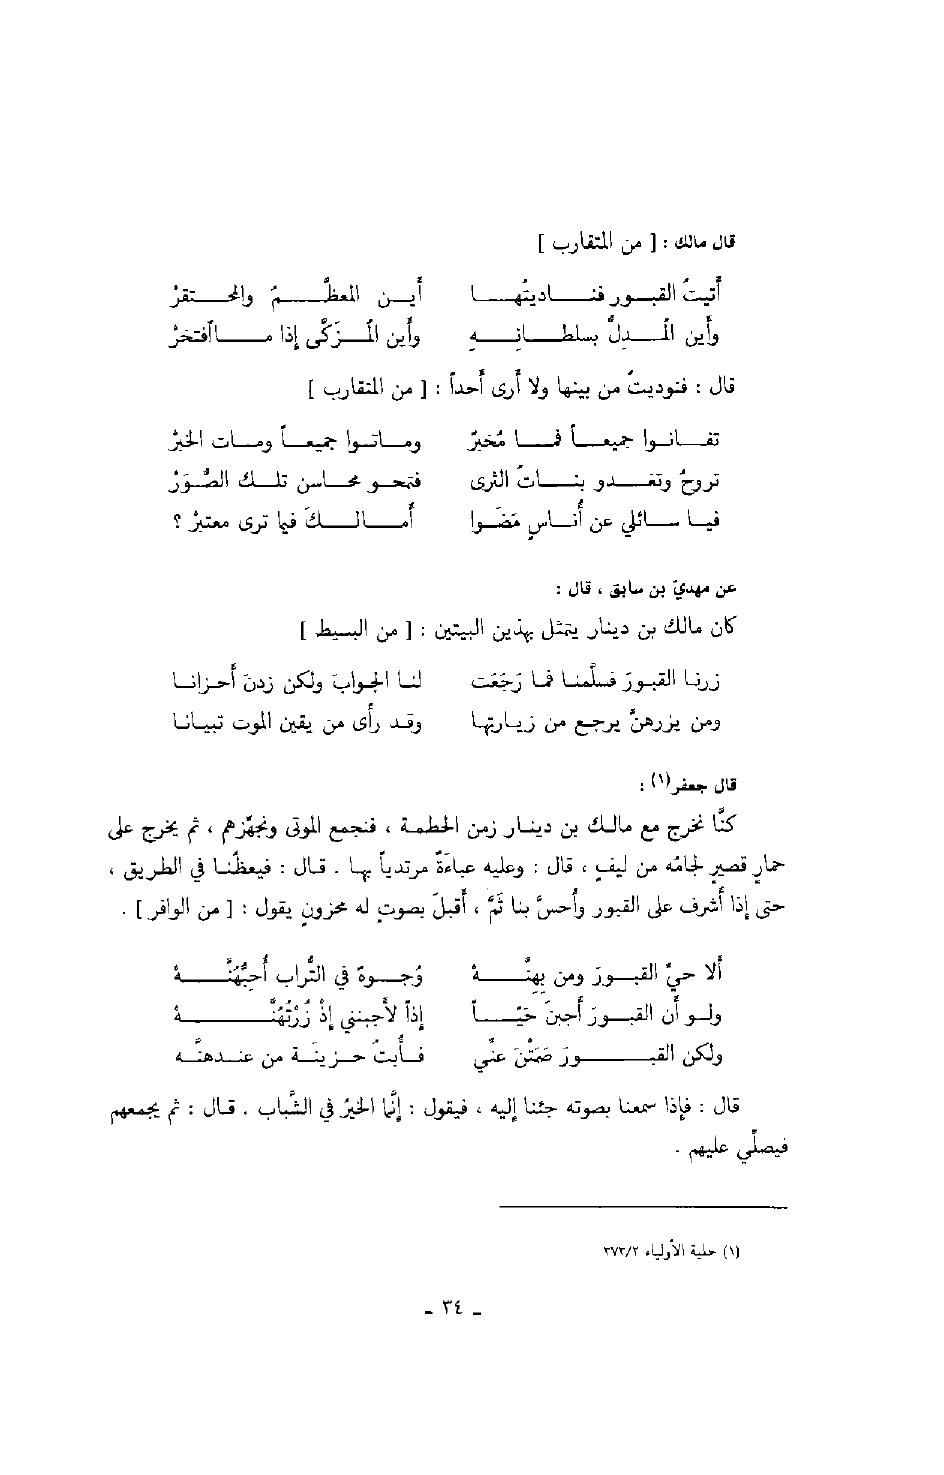 قال مالك : [ من المتقارب ]
أتيتُ القبور فناديتُها أين المعظَّمُ والمحتقرْ
وأين المُدِلُّ بسلطانِهِ وأين المُزَكَّى إذا ما افتخرْ
قال : فنوديتُ من بينها ولا أرى أحداً : [ من المتقارب ]
تفانوا جميعاً فما مُخبرٌ وماتوا جميعاً ومات الخبرْ
تروحُ وتغدو بناتُ الثرى فتمحو محاسن تلك الصُّوَرْ
فيا سائلي عن أُناسٍ مَضَوا أمالكَ فيما ترى معتبرْ ؟
عن مهديّ بن سابق ، قال :
كان مالك بن دينار يتمثل بهذين البيتين : [ من البسيط ]
زرنا القبورَ فسلّمنا فما رَجَعَت لنا الجوابَ ولكن زدنَ أحزانا
ومن يزرهنَّ يرجع من زيارتها وقد رأى من يقين الموت تبيانا
قال جعفر(١) :
كنَّا نخرج مع مالك بن دينار زمن الحطمة ، فنجمع الموتى ونجهّزهم ، ثم يخرج على
حمارٍ قصيرٍ لجامُه من ليفٍ ، قال : وعليه عباءَةٌ مرتدياً بها . قال : فيعظُنا في الطريق ،
حتى إذا أشرف على القبور وأحسَّ بنا ثَمَّ ، أقبلَ بصوتٍ له محزونٍ يقول : [ من الوافر ] .
ألا حيِّ القبورَ ومن بِهِنَّهْ وُجوهٌ في التُّرابِ أُحِبُّهُنَّهْ
ولو أن القبورَ أجبنَ حَيّاً إذاً لأجبنني إذْ زُرْتُهُنَّهْ
ولكن القبورَ صَمَتْنَ عنّي فأُبتُ حزينَةً من عندهنَّه
قال : فإذا سمعنا بصوته جئنا إليه ، فيقول : إنَّما الخيرُ في الشَّباب . قال : ثم يجمعهم
فيصلّي عليهم .
(١) حلية الأولياء ٣٧٣/٢
ـ ٣٤ ـ